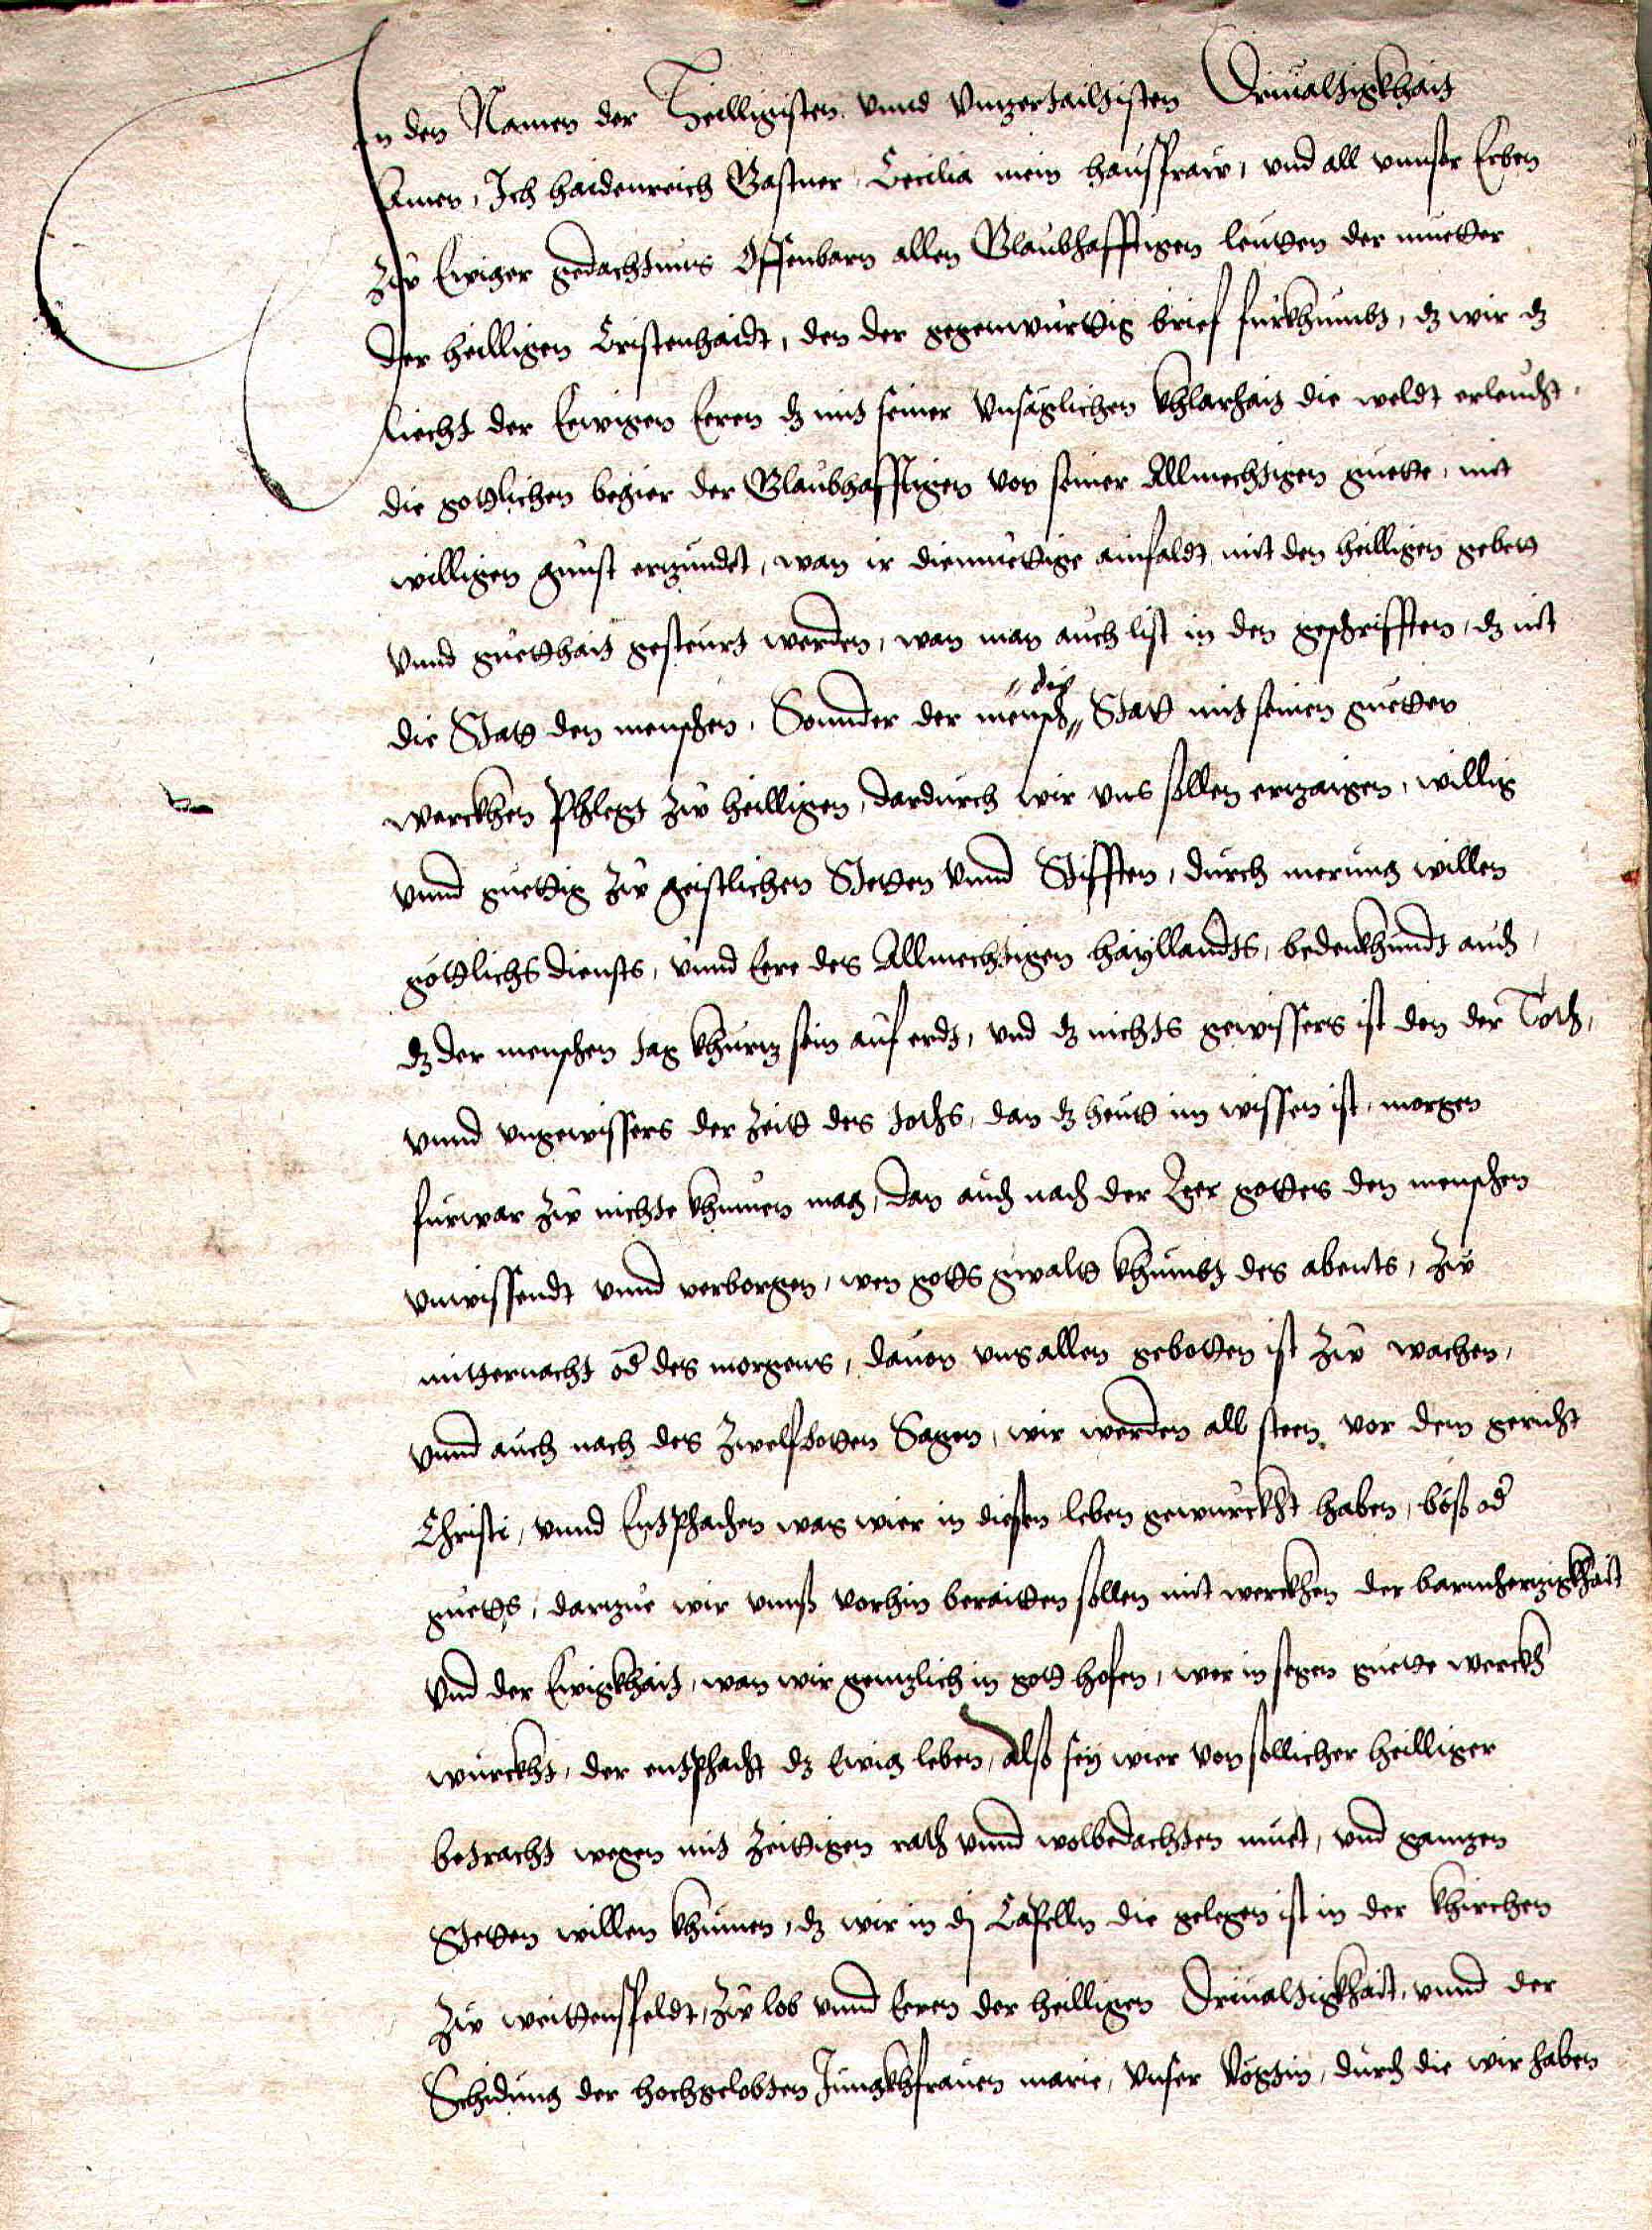 In den Namen der Heilligisten vnnd Vnzertailtisten Driualtigkhait
Amen, Ich haidenreich Gastner Cecilia mein haussfraw, vnd all vnnser Erben
Zw Ewiger gedachtnus Offenbarn allen Glaubhafftigen leutten der muetter
der heilligen Cristenhaidt, den der gegenwurttig brief furkhumbt, dz wir dz
liecht der Eewigen Eeren dz mit seiner Vnsäglichen khlarhait die weldt erleucht,
die gottlichen begier der Glaubhafftigen von seiner Allmechtigen guette, mit
willigen gunst erzundet, wan ir diemuettige ainfaldt mit den heilligen gebett
Vnnd guetthait gesteurt werden, wan man auch list in den geschrifften, dz nit
die Statt den menschen, Sonnder der mensch die Statt mit seinen guetten
werckhen Phlegt Zw heilligen, dardurch wir vns sollen erzaigen, willig
Vnnd guettig Zw geistlichen Stetten Vnnd Stifften, durch merung willen
göttlichs diensts, vnnd Eere des Allmechtigen haÿllandts, bedenkhundt auch,
dz der menschen tag khurz sein auf erdt, vnd dz nichts gewissers ist den der Toth,
vnnd vngewissers der Zeitt des toths, dan dz heutt im wissen ist, morgen
furwar Zw nichte khumen mag, dan auch nach der Leer gottes den menschen
vnwissendt vnnd verborgen, wen gotts gwaltt khumbt des abents, Zw
mitternacht od des morgens, dauon vns allen gebotten ist Zw wachen,
Vnnd auch nach des Zwelfbotten Sagen, wir werden all steen vor dem gericht
Christi, vnnd Entphachen was wier in disen leben gewurckht haben, böß od
guetts, darzue wir vnnß vorhin beraitten sollen mit werckhen der barmherzigkhait
Vnd der Ewigkhait, wan wir genzlich in gott hofen, wer in segen guette werckh
wurckht, der entphacht dz Ewig leben, Alß seÿ wier von sollicher heilliger
betracht wegen mit Zeittigen rath vnnd wolbedachten muet, vnd ganzen
Stetten willen khumen, dz wir in dj Capellen die gelegen ist in der khirchen
Zw weittensfeldt, Zw lob vnnd Eeren der heilligen Driualtigkhait, vnnd der
Schidung der hochgelobten Jungkhfrauen marie, Vnser Vögtin, durch die wir haben